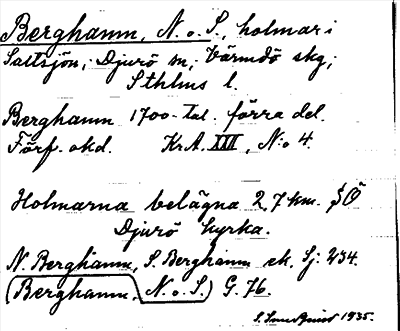 Berghamn, N. o S., holmar i
Saltsjön, Djurö sn, Värmdö skg,
Sthlms l.
Berghamn 1700-tal. förra del.
Förf. okd. Kr.A. XIII, N:o 4.
Holmarna belägna 2,7 km. SÖ
Djurö kyrka.
N. Berghamn, S. Berghamn ek. Sj: 234.
(Berghamn, N. o S.) G. 76.
1935.